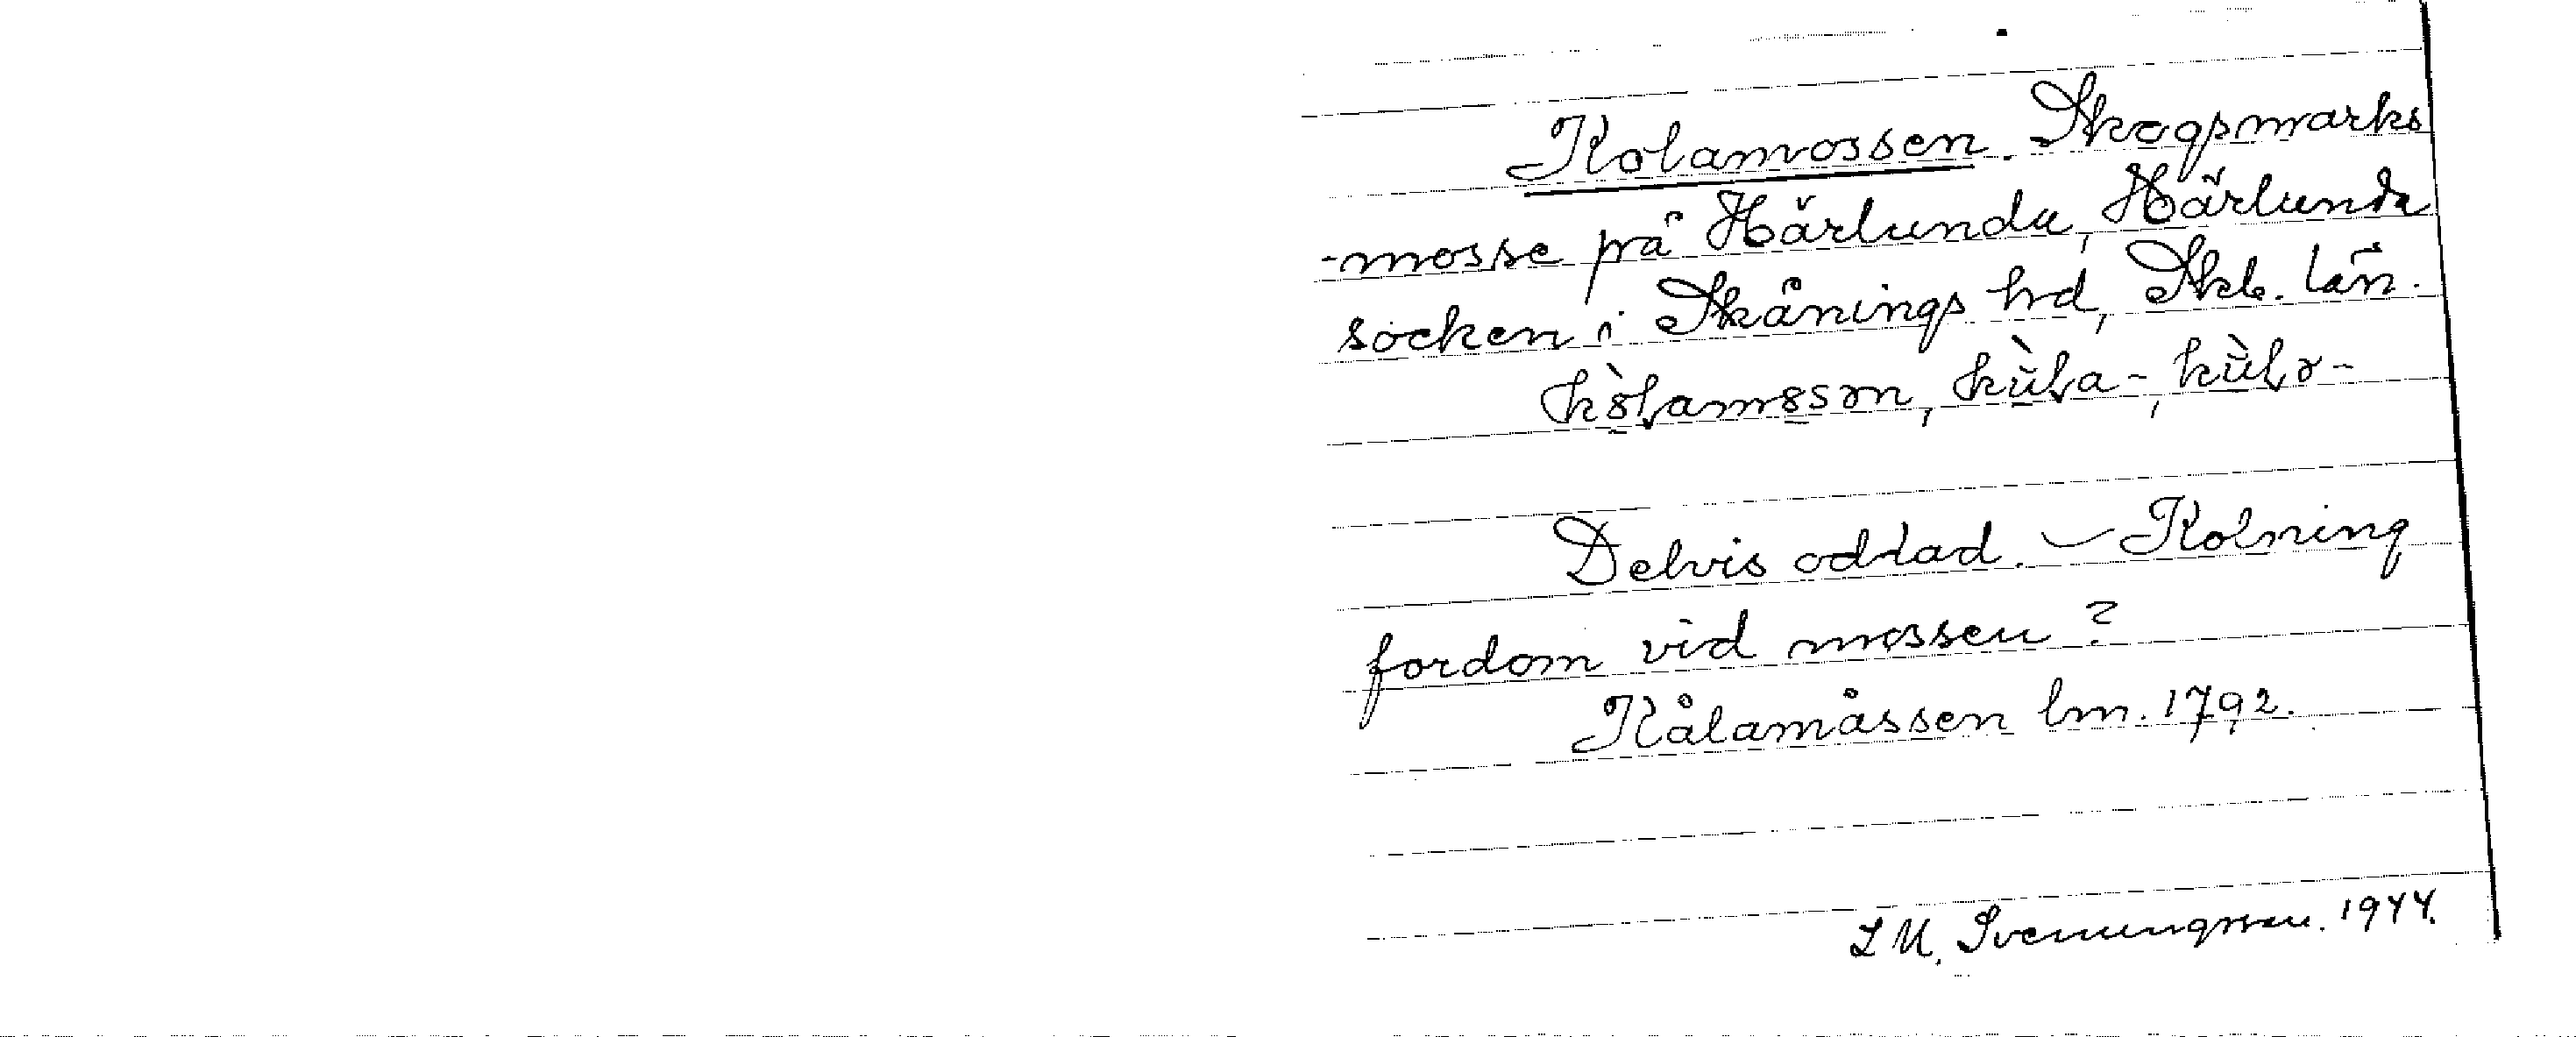 Kolamossen. Skogsmarks
-mosse på Härlunda, Härlunda
socken i Skånings hd, Skb. län.
Delvis odlad. – Kolning
fordom vid mossen?
Kålamåssen lm. 1792.
S M. Svenungsson. 1944.